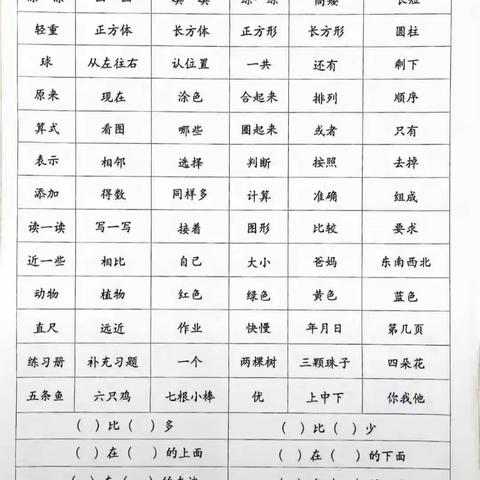 轻重 正方体 长方体 正方形 长方形 圆柱
球 从左往右 认位置 一共 还有 剩下
原来 现在 涂色 合起来 排列 顺序
算式 看图 哪些 圈起来 或者 只有
表示 相邻 选择 判断 按照 去掉
添加 得数 同样多 计算 准确 组成
读一读 写一写 接着 图形 比较 要求
近一些 相比 自己 大小 爸妈 东南西北
动物 植物 红色 绿色 黄色 蓝色
直尺 远近 作业 快慢 年月日 第几页
练习册 补充习题 一个 两棵树 三颗珠子 四朵花
五条鱼 六只鸡 七根小棒 优 上中下 你我他
( ) 比 ( ) 多 ( ) 比 ( ) 少
( ) 在 ( ) 的上面 ( ) 在 ( ) 的下面